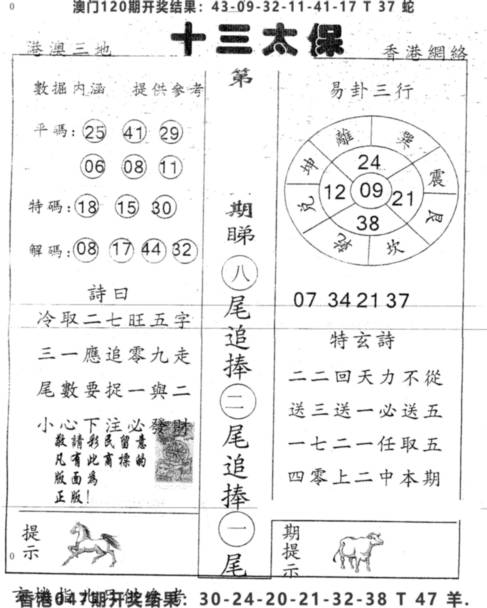 澳门120期开奖结果：43-09-32-11-41-17 T 37 蛇
十三太保
港澳三地
香港網絡
數据内涵 提供參考
平碼：25 41 29
06 08 11
特碼：18 15 30
解碼：08 17 44 32
詩曰
冷取二七旺五字
三一應追零九走
尾數要捉一與二
小心下注必發財
敬請彩民留意
凡有此商標的
版面爲
正版！
提示
第
期
睇
八
尾
追
捧
二
尾
追
捧
一
尾
易卦三行
離 巽 震 艮 坎 乾 兑 坤
24
12 09 21
38
07 34 21 37
特玄詩
二二回天力不從
送三送一必送五
一七二一任取五
四零上二中本期
期提示
香港047期开奖结果：30-24-20-21-32-38 T 47 羊.